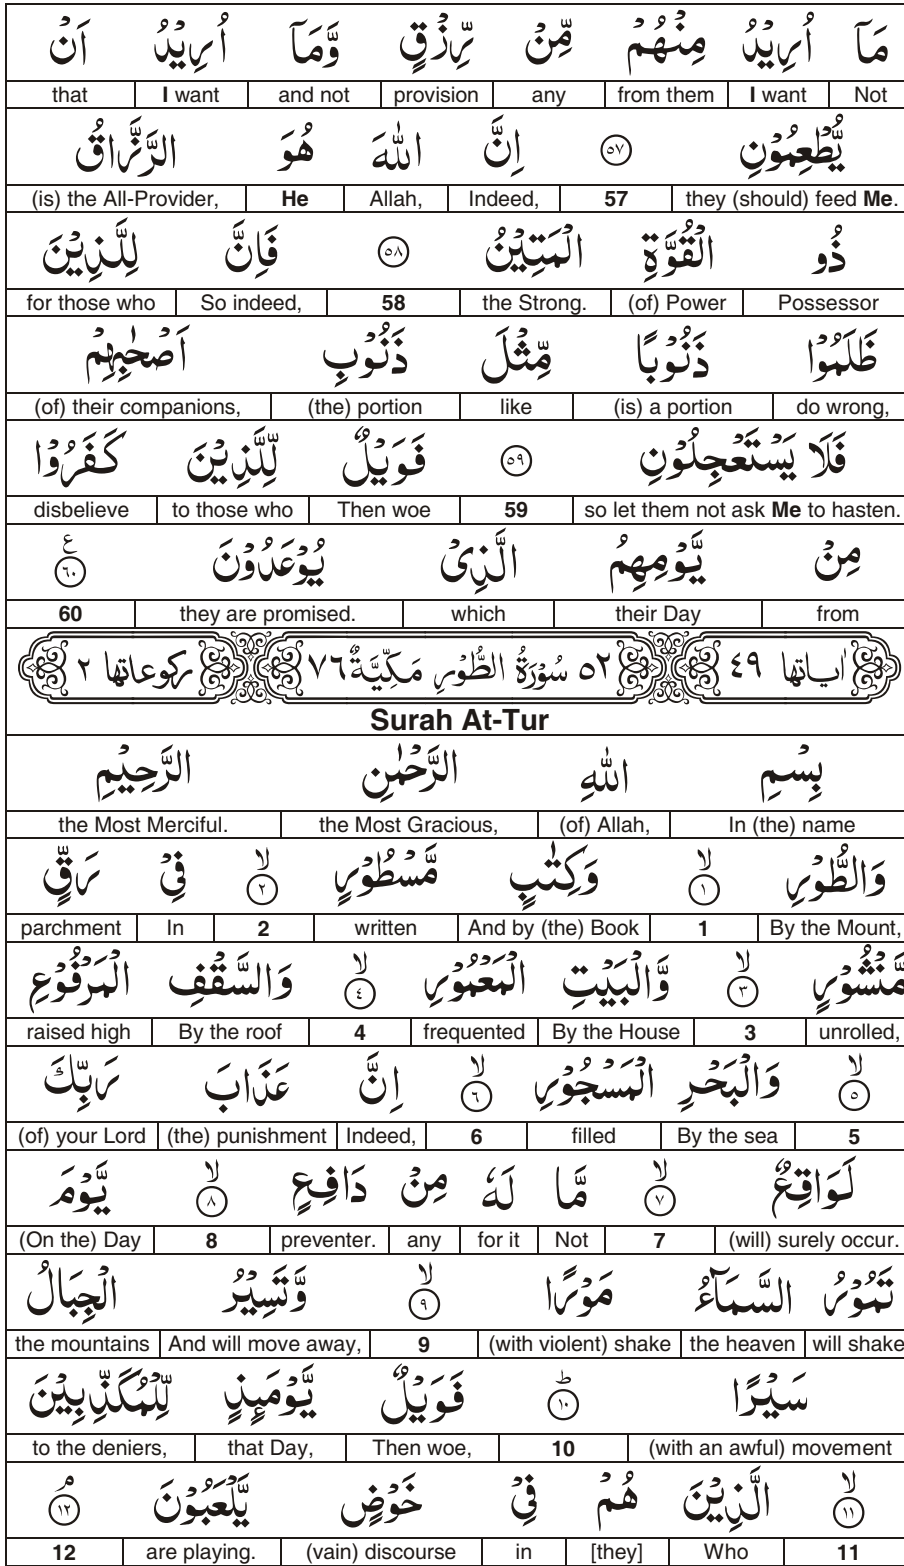 مَآ اُرِيۡدُ مِنۡهُمۡ مِّنۡ رِّزۡقٍ وَّمَآ اُرِيۡدُ اَنۡ
Not I want from them any provision and not I want that
يُّطۡعِمُوۡنِ ٥٧ اِنَّ اللّٰهَ هُوَ الرَّزَّاقُ
they (should) feed Me. 57 Indeed, Allah, He (is) the All-Provider,
ذُو الۡقُوَّةِ الۡمَتِيۡنُ ٥٨ فَاِنَّ لِلَّذِيۡنَ
Possessor (of) Power the Strong. 58 So indeed, for those who
ظَلَمُوۡا ذَنُوۡبًا مِّثۡلَ ذَنُوۡبِ اَصۡحٰبِهِمۡ
do wrong, (is) a portion like (the) portion (of) their companions,
فَلَا يَسۡتَعۡجِلُوۡنِ ٥٩ فَوَيۡلٌ لِّلَّذِيۡنَ كَفَرُوۡا
so let them not ask Me to hasten. 59 Then woe to those who disbelieve
مِنۡ يَّوۡمِهِمُ الَّذِىۡ يُوۡعَدُوۡنَ ٦٠ ع
from their Day which they are promised. 60
اٰياتها ٤٩ ٥٢ سُوۡرَةُ الطُّوۡرِ مَكِّيَّةٌ ٧٦ ركوعاتها ٢
Surah At-Tur
بِسۡمِ اللّٰهِ الرَّحۡمٰنِ الرَّحِيۡمِ
In (the) name (of) Allah, the Most Gracious, the Most Merciful.
وَالطُّوۡرِ ١ۙ وَكِتٰبٍ مَّسۡطُوۡرٍ ٢ۙ فِىۡ رَقٍّ
By the Mount, 1 And by (the) Book written 2 In parchment
مَّنۡشُوۡرٍ ٣ۙ وَّالۡبَيۡتِ الۡمَعۡمُوۡرِ ٤ۙ وَالسَّقۡفِ الۡمَرۡفُوۡعِ
unrolled, 3 By the House frequented 4 By the roof raised high
٥ۙ وَالۡبَحۡرِ الۡمَسۡجُوۡرِ ٦ۙ اِنَّ عَذَابَ رَبِّكَ
5 By the sea filled 6 Indeed, (the) punishment (of) your Lord
لَوَاقِعٌ ٧ۙ مَّا لَهٗ مِنۡ دَافِعٍ ٨ۙ يَّوۡمَ
(will) surely occur. 7 Not for it any preventer. 8 (On the) Day
تَمُوۡرُ السَّمَآءُ مَوۡرًا ٩ۙ وَّتَسِيۡرُ الۡجِبَالُ
will shake the heaven (with violent) shake 9 And will move away, the mountains
سَيۡرًا ١٠ؕ فَوَيۡلٌ يَّوۡمَئِذٍ لِّلۡمُكَذِّبِيۡنَ
(with an awful) movement 10 Then woe, that Day, to the deniers,
١١ۙ الَّذِيۡنَ هُمۡ فِىۡ خَوۡضٍ يَّلۡعَبُوۡنَ ١٢ۘ
11 Who [they] in (vain) discourse are playing. 12